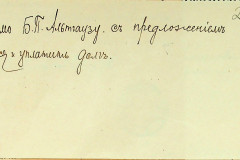 мо Б. П. Альтаузу. съ предложеніемъ
ся уплатить долгъ.